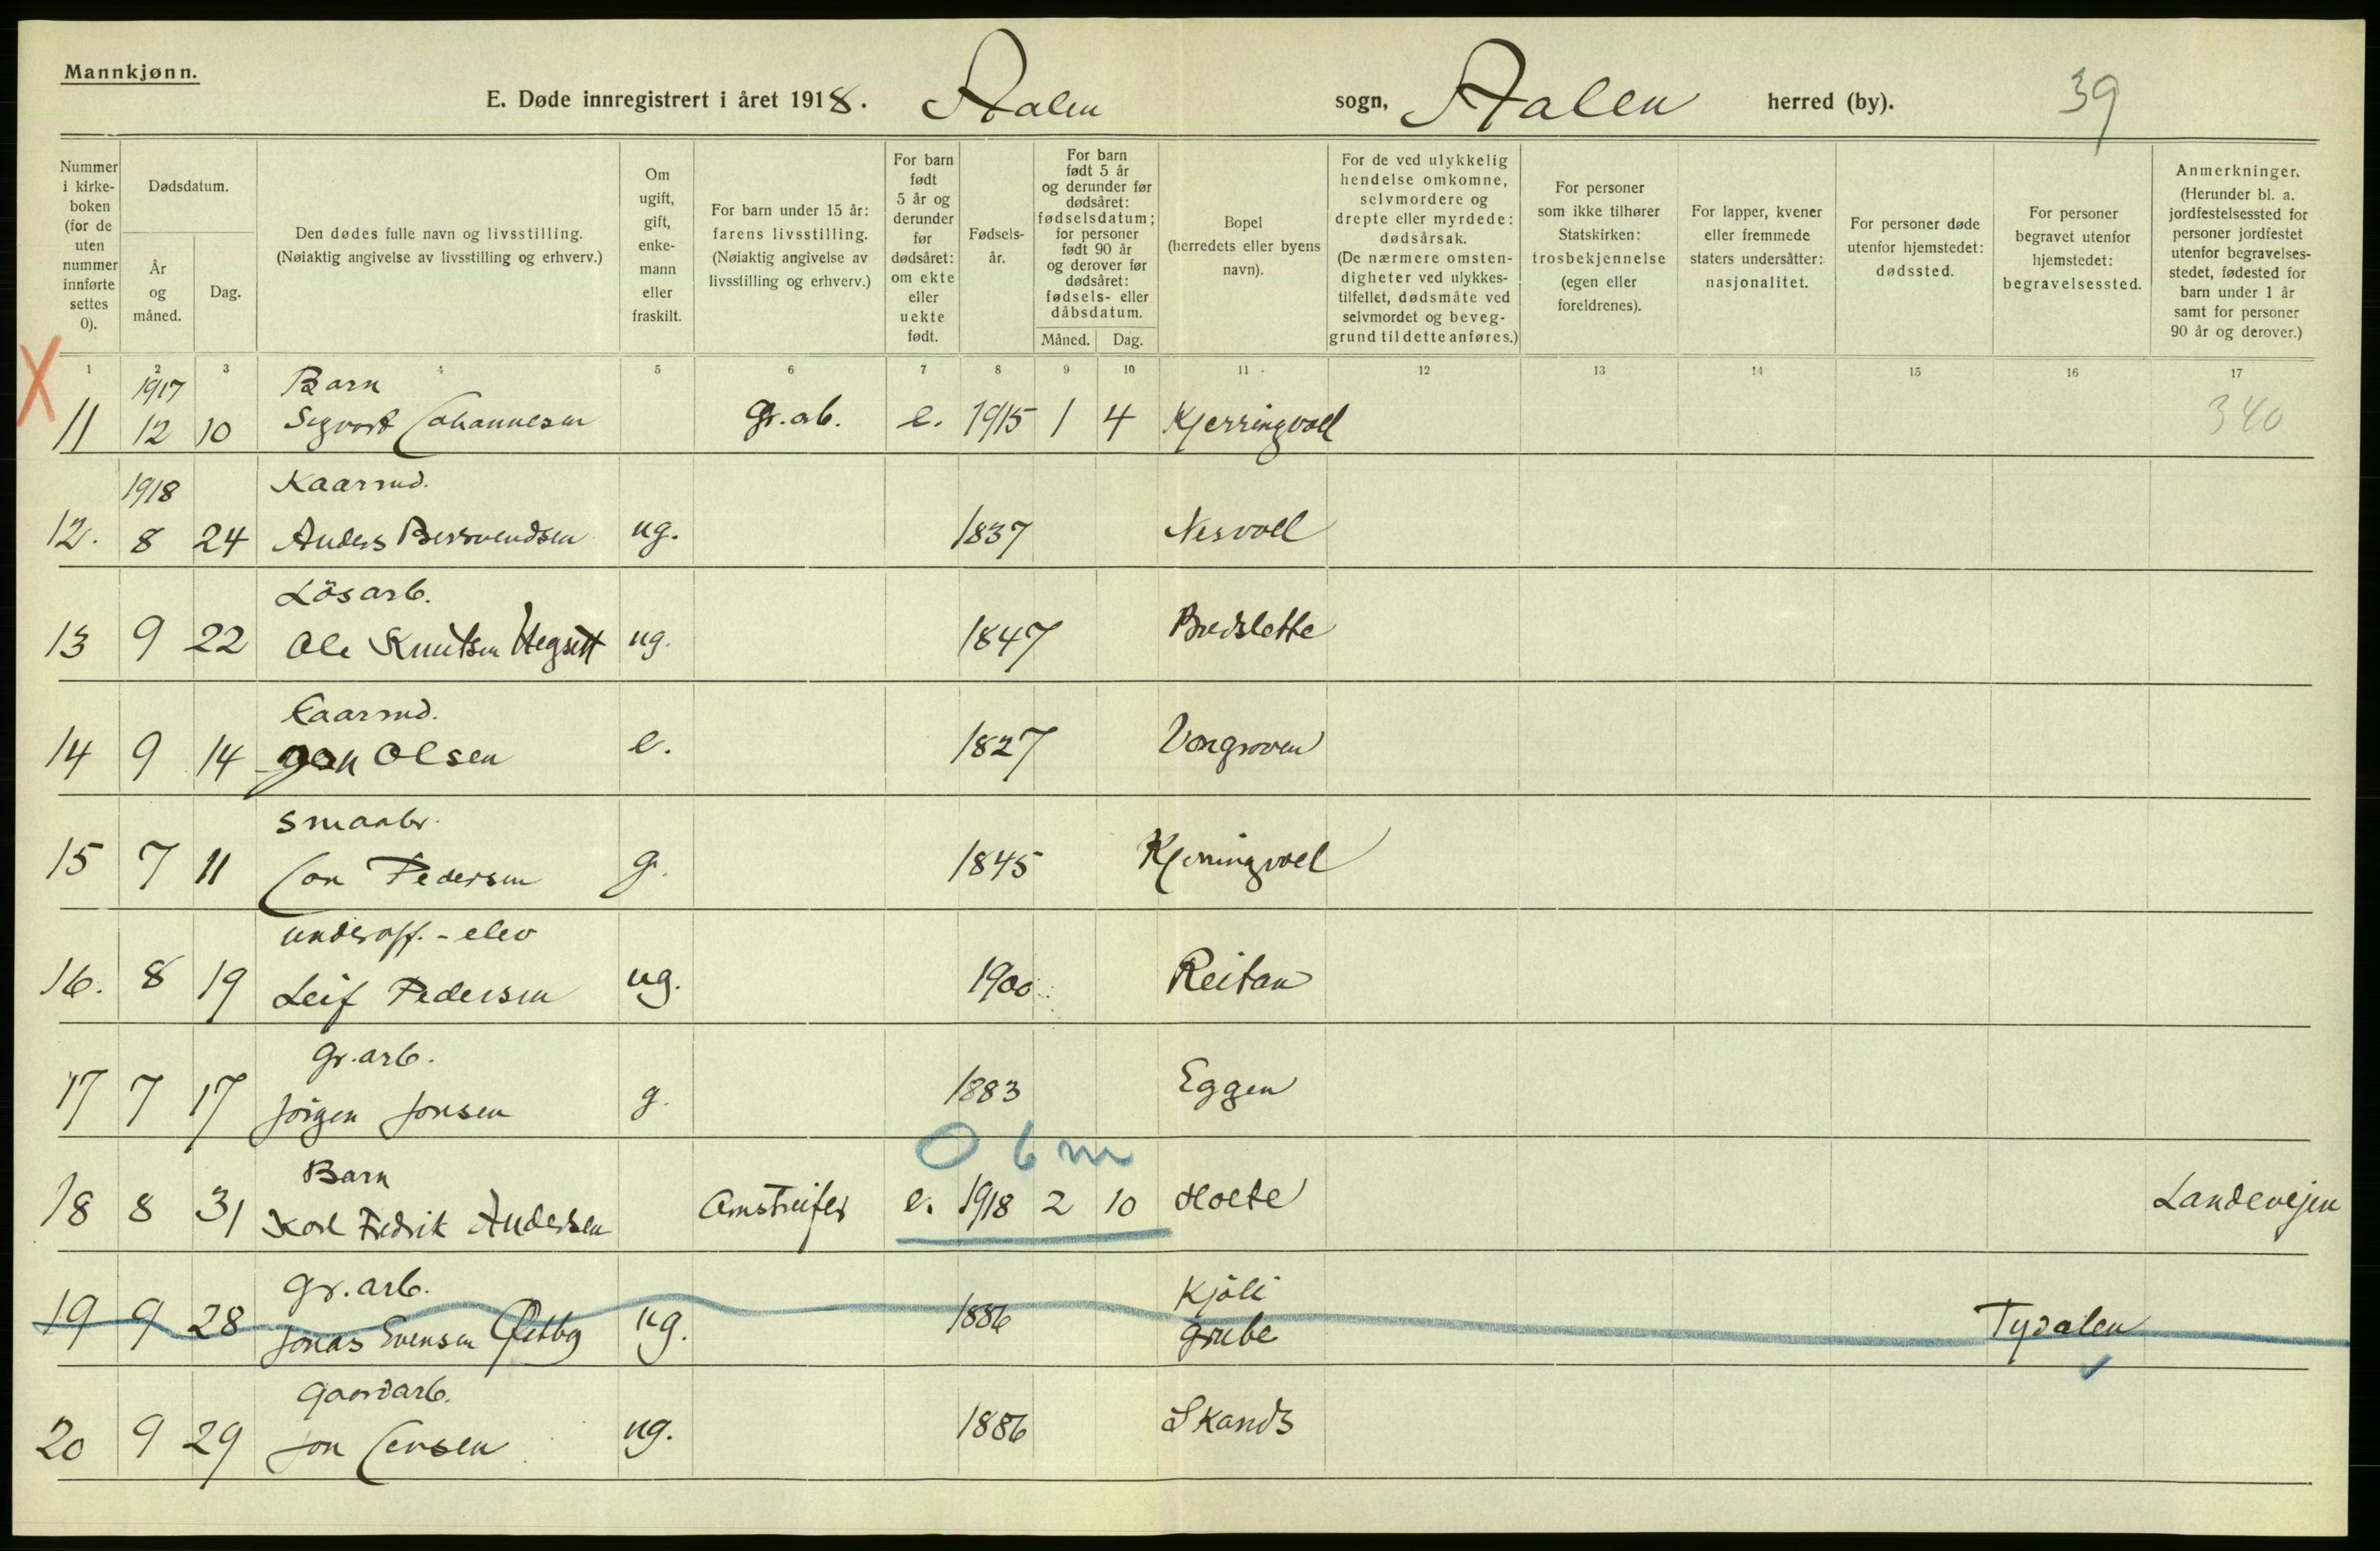 Mannkjønn.
E. Døde innregistrert i året 1918. Aalen sogn, Aalen herred (by). 39
Nummer i kirke- boken (for de uten nummer innførte settes 0).
Dødsdatum.
År og måned.
Dag.
Den dødes fulle navn og livsstilling. (Nøiaktig angivelse av livsstilling og erhverv.)
Om ugift, gift, enke- mann eller fraskilt.
For barn under 15 år: farens livsstilling. (Nøiaktig angivelse av livsstilling og erhverv.)
For barn født 5 år og derunder før dødsåret: om ekte eller uekte født.
Fødsels- år.
For barn født 5 år og derunder før dødsåret: fødselsdatum; for personer født 90 år og derover før dødsåret: fødsels- eller dåbsdatum.
Måned. Dag.
Bopel (herredets eller byens navn).
For de ved ulykkelig hendelse omkomne, selvmordere og drepte eller myrdede: dødsårsak. (De nærmere omsten- digheter ved ulykkes- tilfellet, dødsmåte ved selvmordet og beveg- grund til dette anføres.)
For personer som ikke tilhører Statskirken: trosbekjennelse (egen eller foreldrenes).
For lapper, kvener eller fremmede staters undersåtter: nasjonalitet.
For personer døde utenfor hjemstedet: dødssted.
For personer begravet utenfor hjemstedet: begravelsessted.
Anmerkninger. (Herunder bl. a. jordfestelsessted for personer jordfestet utenfor begravelses- stedet, fødested for barn under 1 år samt for personer 90 år og derover.)
1 2 3 4 5 6 7 8 9 10 11 12 13 14 15 16 17
X
1917 Barn
11 12 10 Sigvart Johannesen Gr.arb. e. 1915 1 4 Kjerringvoll 340
1918 Kaarmd.
12. 8 24 Anders Bersvendsen ug. 1837 Nesvoll
Lösarb.
13 9 22 Ole Knutsen Hegsett ug. 1847 Bredslette
Kaarmd.
14 9 14 Jon Olsen e. 1827 Vongraven
Smaabr.
15 7 11 Jon Pedersen g. 1845 Kjerringvoll
underoff.-elev
16. 8 19 Leif Pedersen ug. 1900 Reitan
Gr.arb.
17 7 17 Jörgen Jonsen g. 1883 Eggen
0 6 m
Barn
18 8 31 Karl Fredrik Andersen Omstreifer e. 1918 2 10 Holte Landevejen
Gr.arb. Kjöli
19 9 28 Jonas Evensen ug. 1886 Grube Tydalen
Gaardarb.
20 9 29 Jon Jensen ug. 1886 Skands